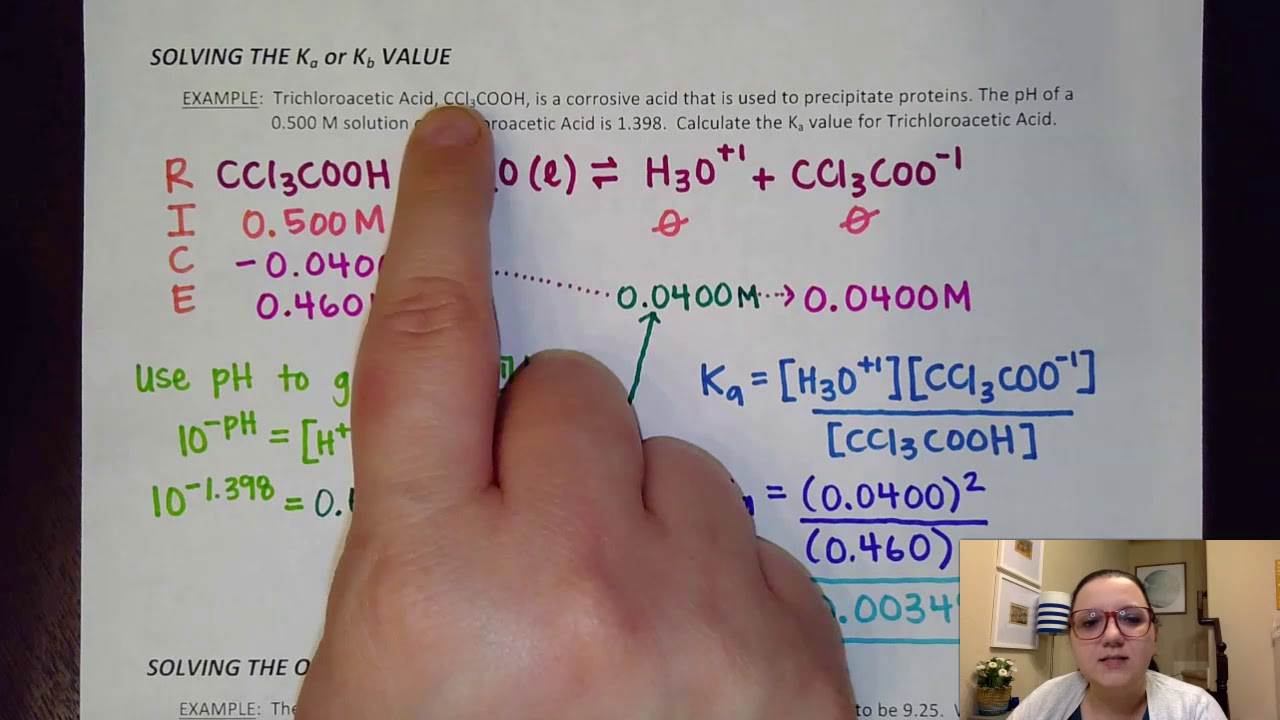 SOLVING THE Kₐ or K_b VALUE
EXAMPLE: Trichloroacetic Acid, CCl₃COOH, is a corrosive acid that is used to precipitate proteins. The pH of a
0.500 M solution Acid is 1.398. Calculate the Kₐ value for Trichloroacetic Acid.
R CCl₃COOH O (l) ⇌ H₃O⁺¹ + CCl₃COO⁻¹
I 0.500M 0 0
C -0.040
E 0.460 0.0400M 0.0400M
Use pH to
10^-pH = [H⁺
10^-1.398 = 0.
Kₐ = [H₃O⁺¹][CCl₃COO⁻¹]
[CCl₃COOH]
= (0.0400)²
(0.460)
.0034
SOLVING THE
EXAMPLE: to be 9.25.